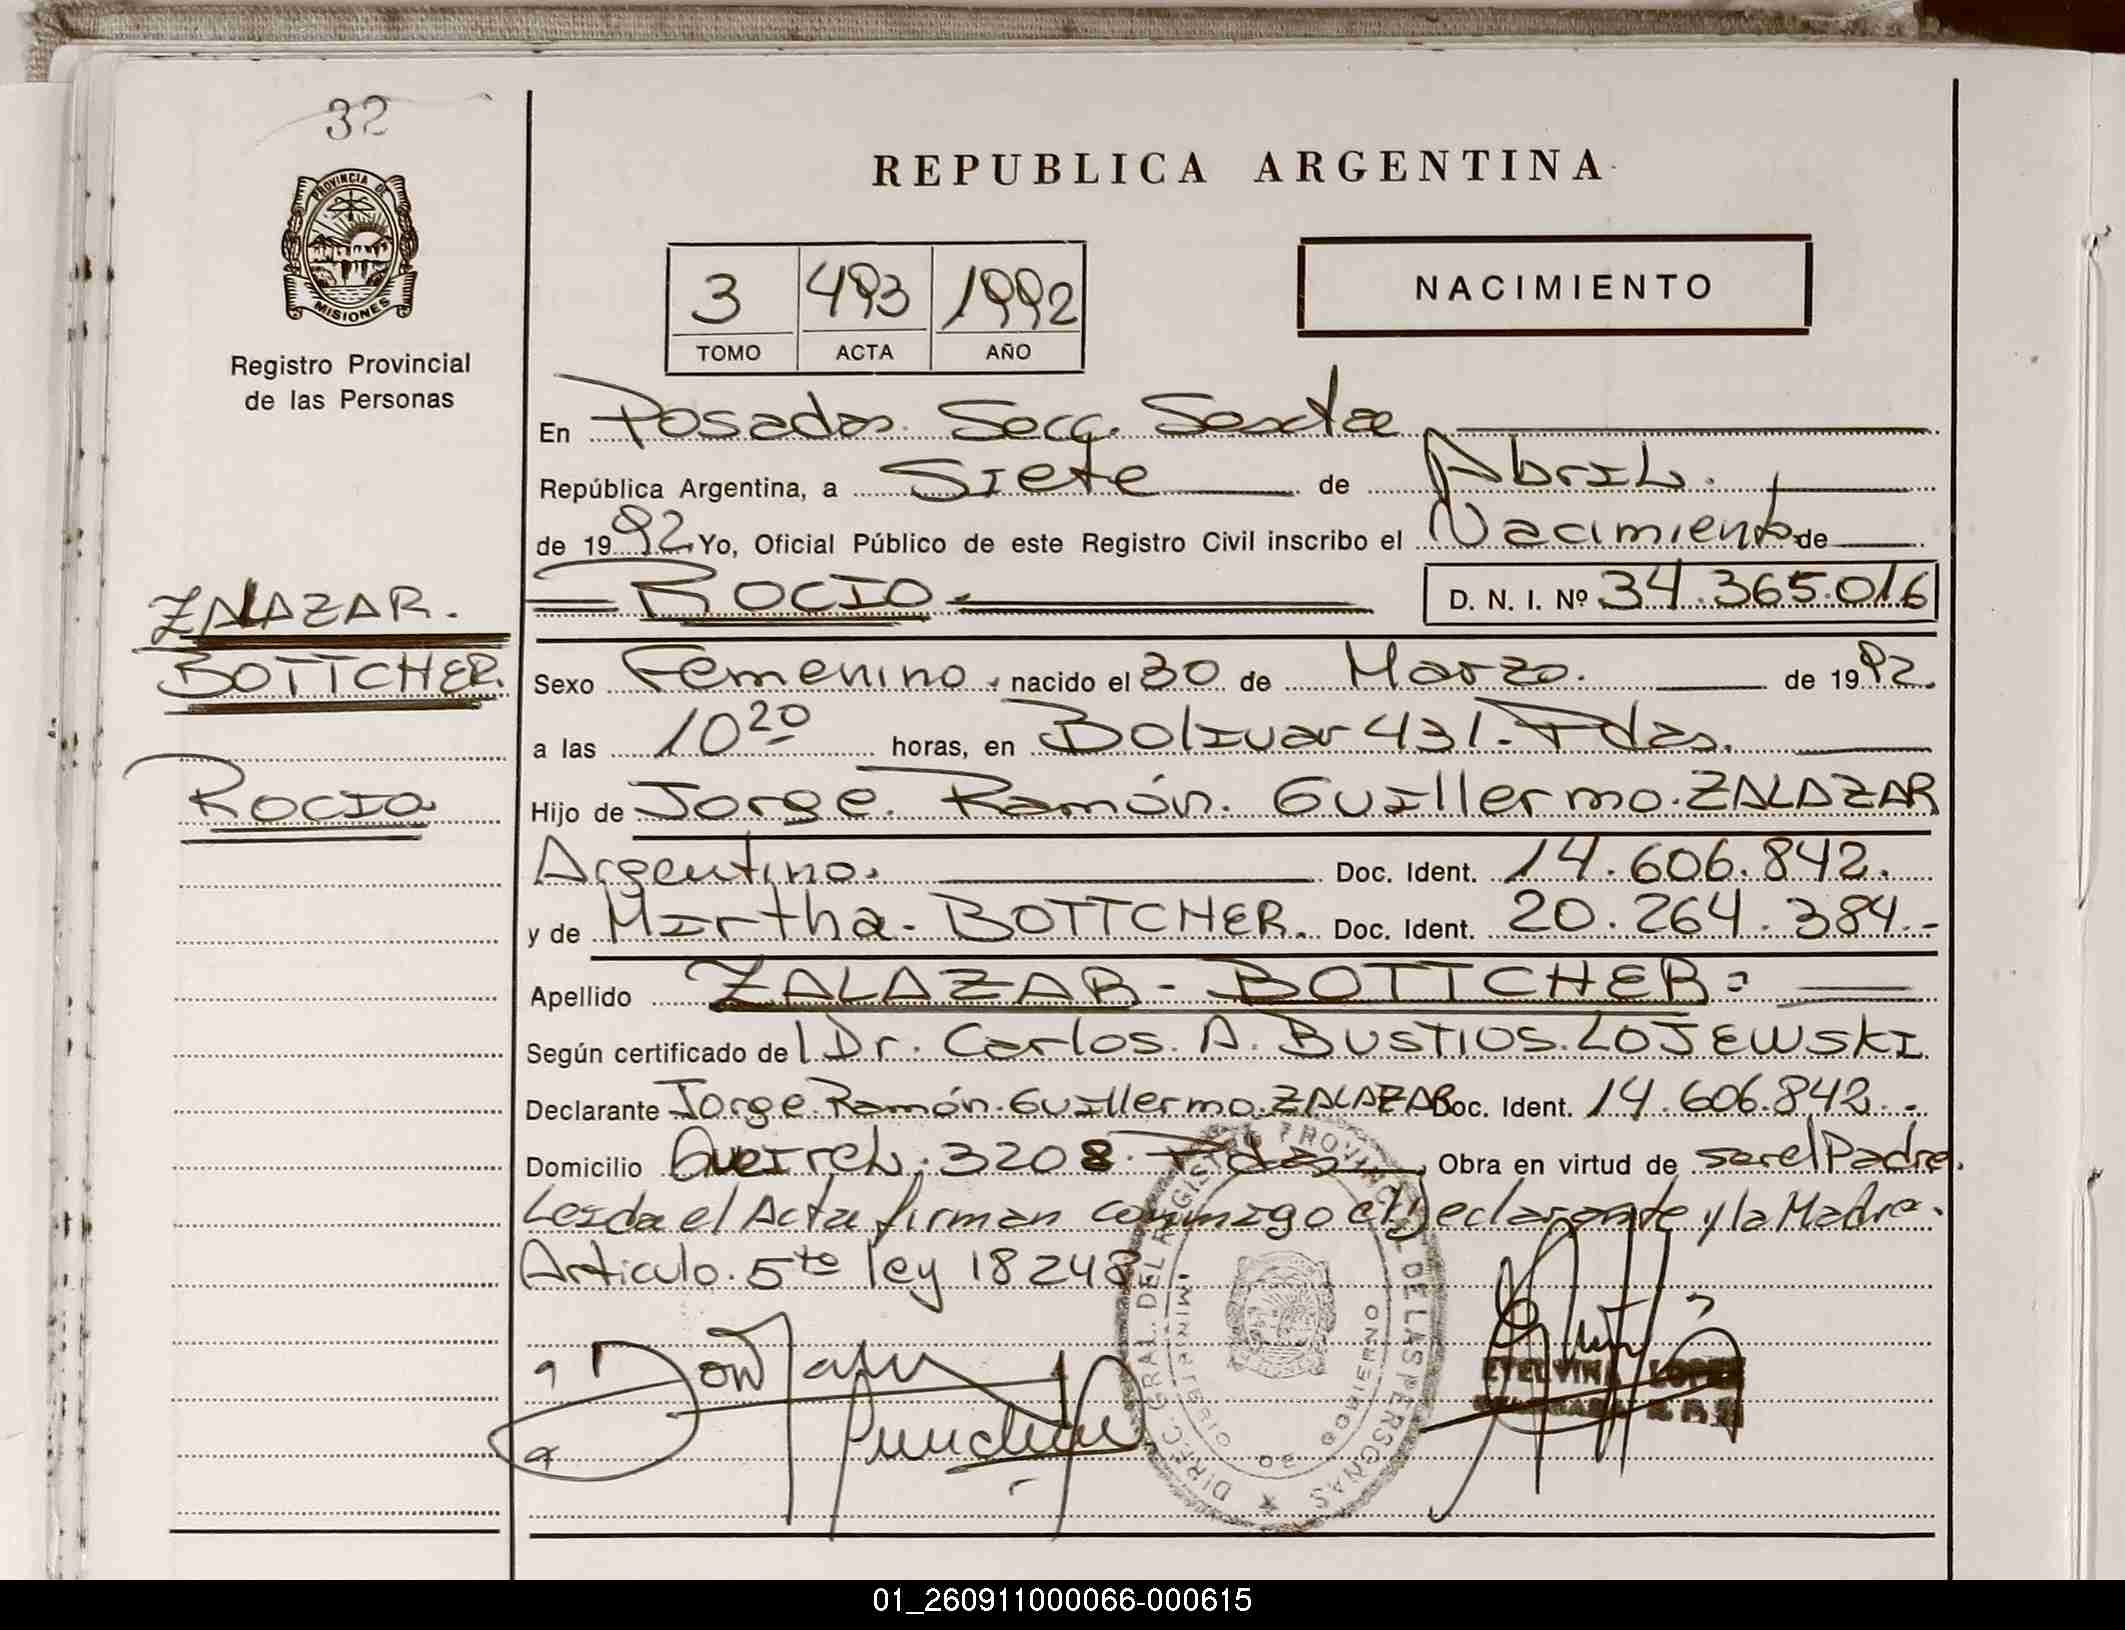 32
PROVINCIA DE
MISIONES
Registro Provincial
de las Personas
ZALAZAR.
BOTTCHER.
ROCIO
REPUBLICA ARGENTINA
3 493 1992
TOMO ACTA AÑO
NACIMIENTO
En Posadas. Secc. Sexta
República Argentina, a Siete de Abril.
de 1992 Yo, Oficial Público de este Registro Civil inscribo el Nacimiento de
ROCIO.
D. N. I. Nº 34.365.016
Sexo Femenino, nacido el 30 de Marzo. de 1992.
a las 10 20 horas, en Bolivar 431. Pdas.
Hijo de Jorge. Ramón. Guillermo. ZALAZAR
Argentino. Doc. Ident. 14.606.842.
y de Mirtha. BOTTCHER. Doc. Ident. 20.264.384.-
Apellido ZALAZAR - BOTTCHER =
Según certificado del Dr. Carlos. A. BUSTIOS. LOJEWSKI.
Declarante Jorge. Ramón. Guillermo. ZALAZAR Doc. Ident. 14.606.842.-
Domicilio 3208. Pdas Obra en virtud de ser el Padre.
Leida el Acta firman conmigo el Declarante y la Madre.
Articulo. 5to ley 18248
DIREC. GRAL. DEL REGISTRO PROVINCIAL DE LAS PERSONAS
MINISTERIO DE GOBIERNO
ETELVINA LOPEZ
01_260911000066-000615